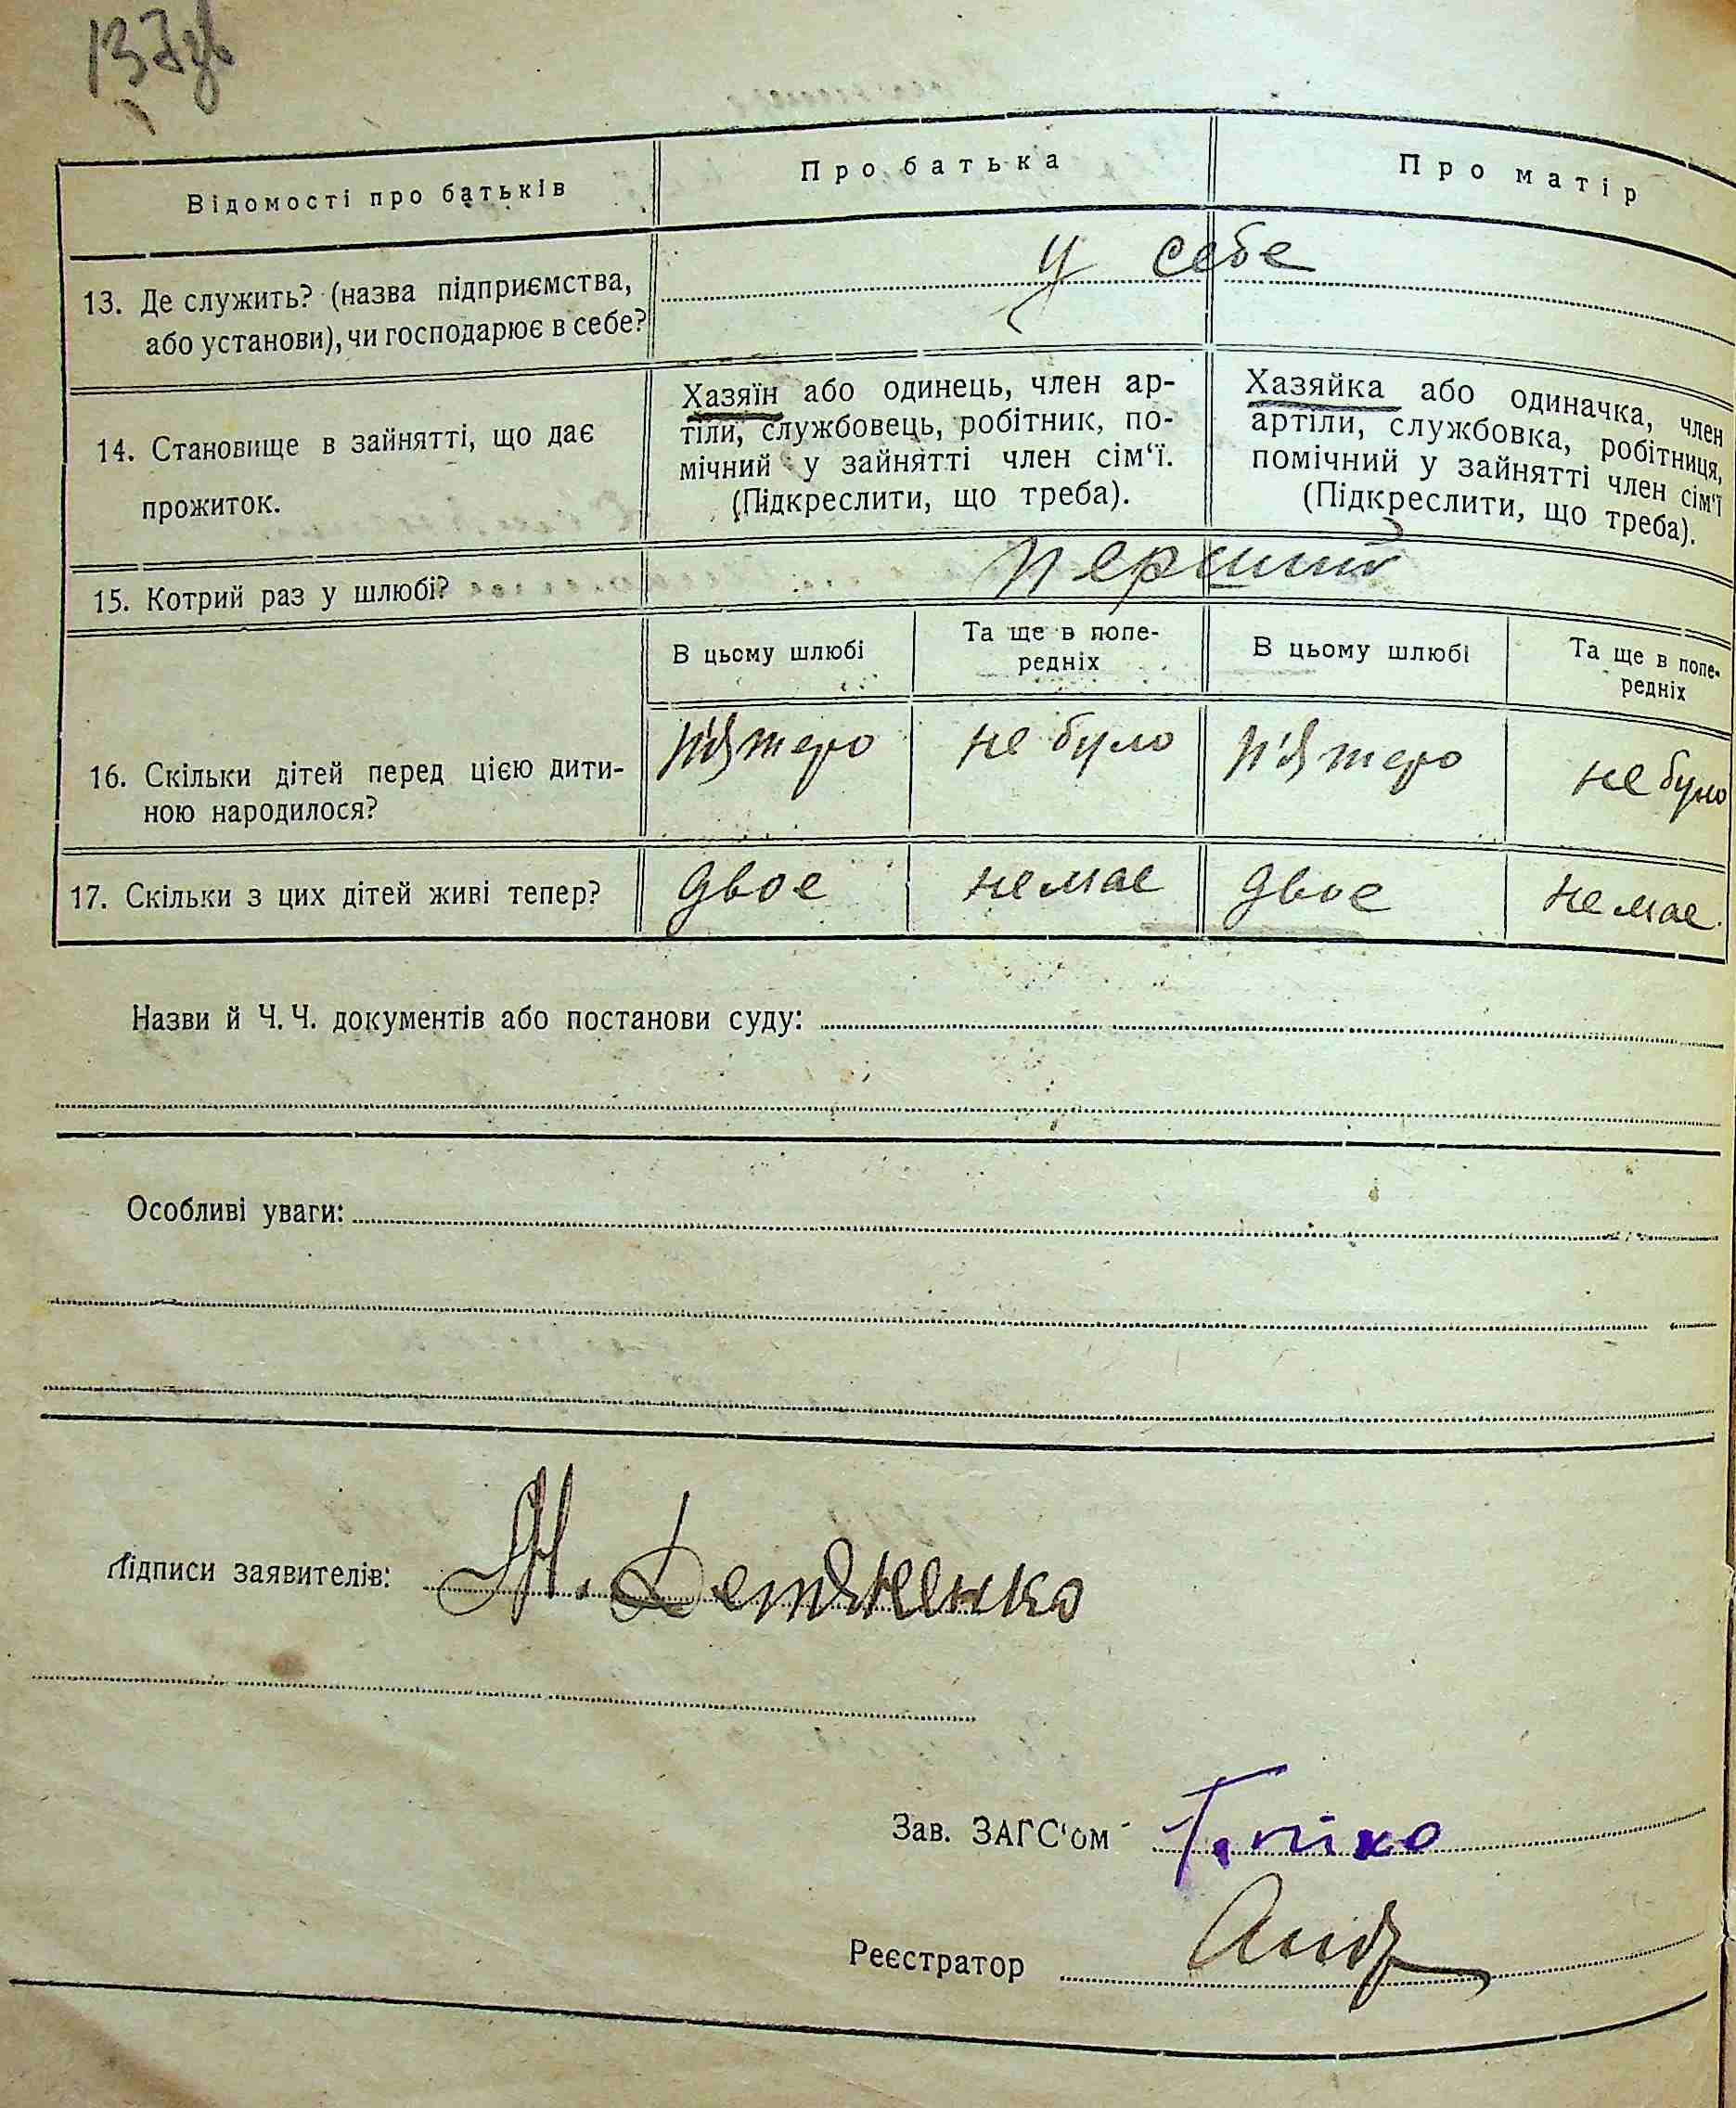 137зв
Відомості про батьків
Про батька
Про матір
13. Де служить? (назва підприємства,
або установи), чи господарює в себе?
у себе
14. Становище в зайнятті, що дає
прожиток.
Хазяїн або одинець, член ар-
тіли, службовець, робітник, по-
мічний у зайнятті член сім‘ї.
(Підкреслити, що треба).
Хазяйка або одиначка, член
артіли, службовка, робітниця,
помічний у зайнятті член сім‘ї
(Підкреслити, що треба).
15. Котрий раз у шлюбі?
перший
16. Скільки дітей перед цією дити-
ною народилося?
В цьому шлюбі
Та ще в попе-
редніх
В цьому шлюбі
Та ще в попе-
редніх
п'ятеро
не було
п'ятеро
не було
17. Скільки з цих дітей живі тепер?
двое
немае
двое
немае
Назви й Ч. Ч. документів або постанови суду:
Особливі уваги:
Підписи заявителів:
Зав. ЗАГС‘ом
Реєстратор